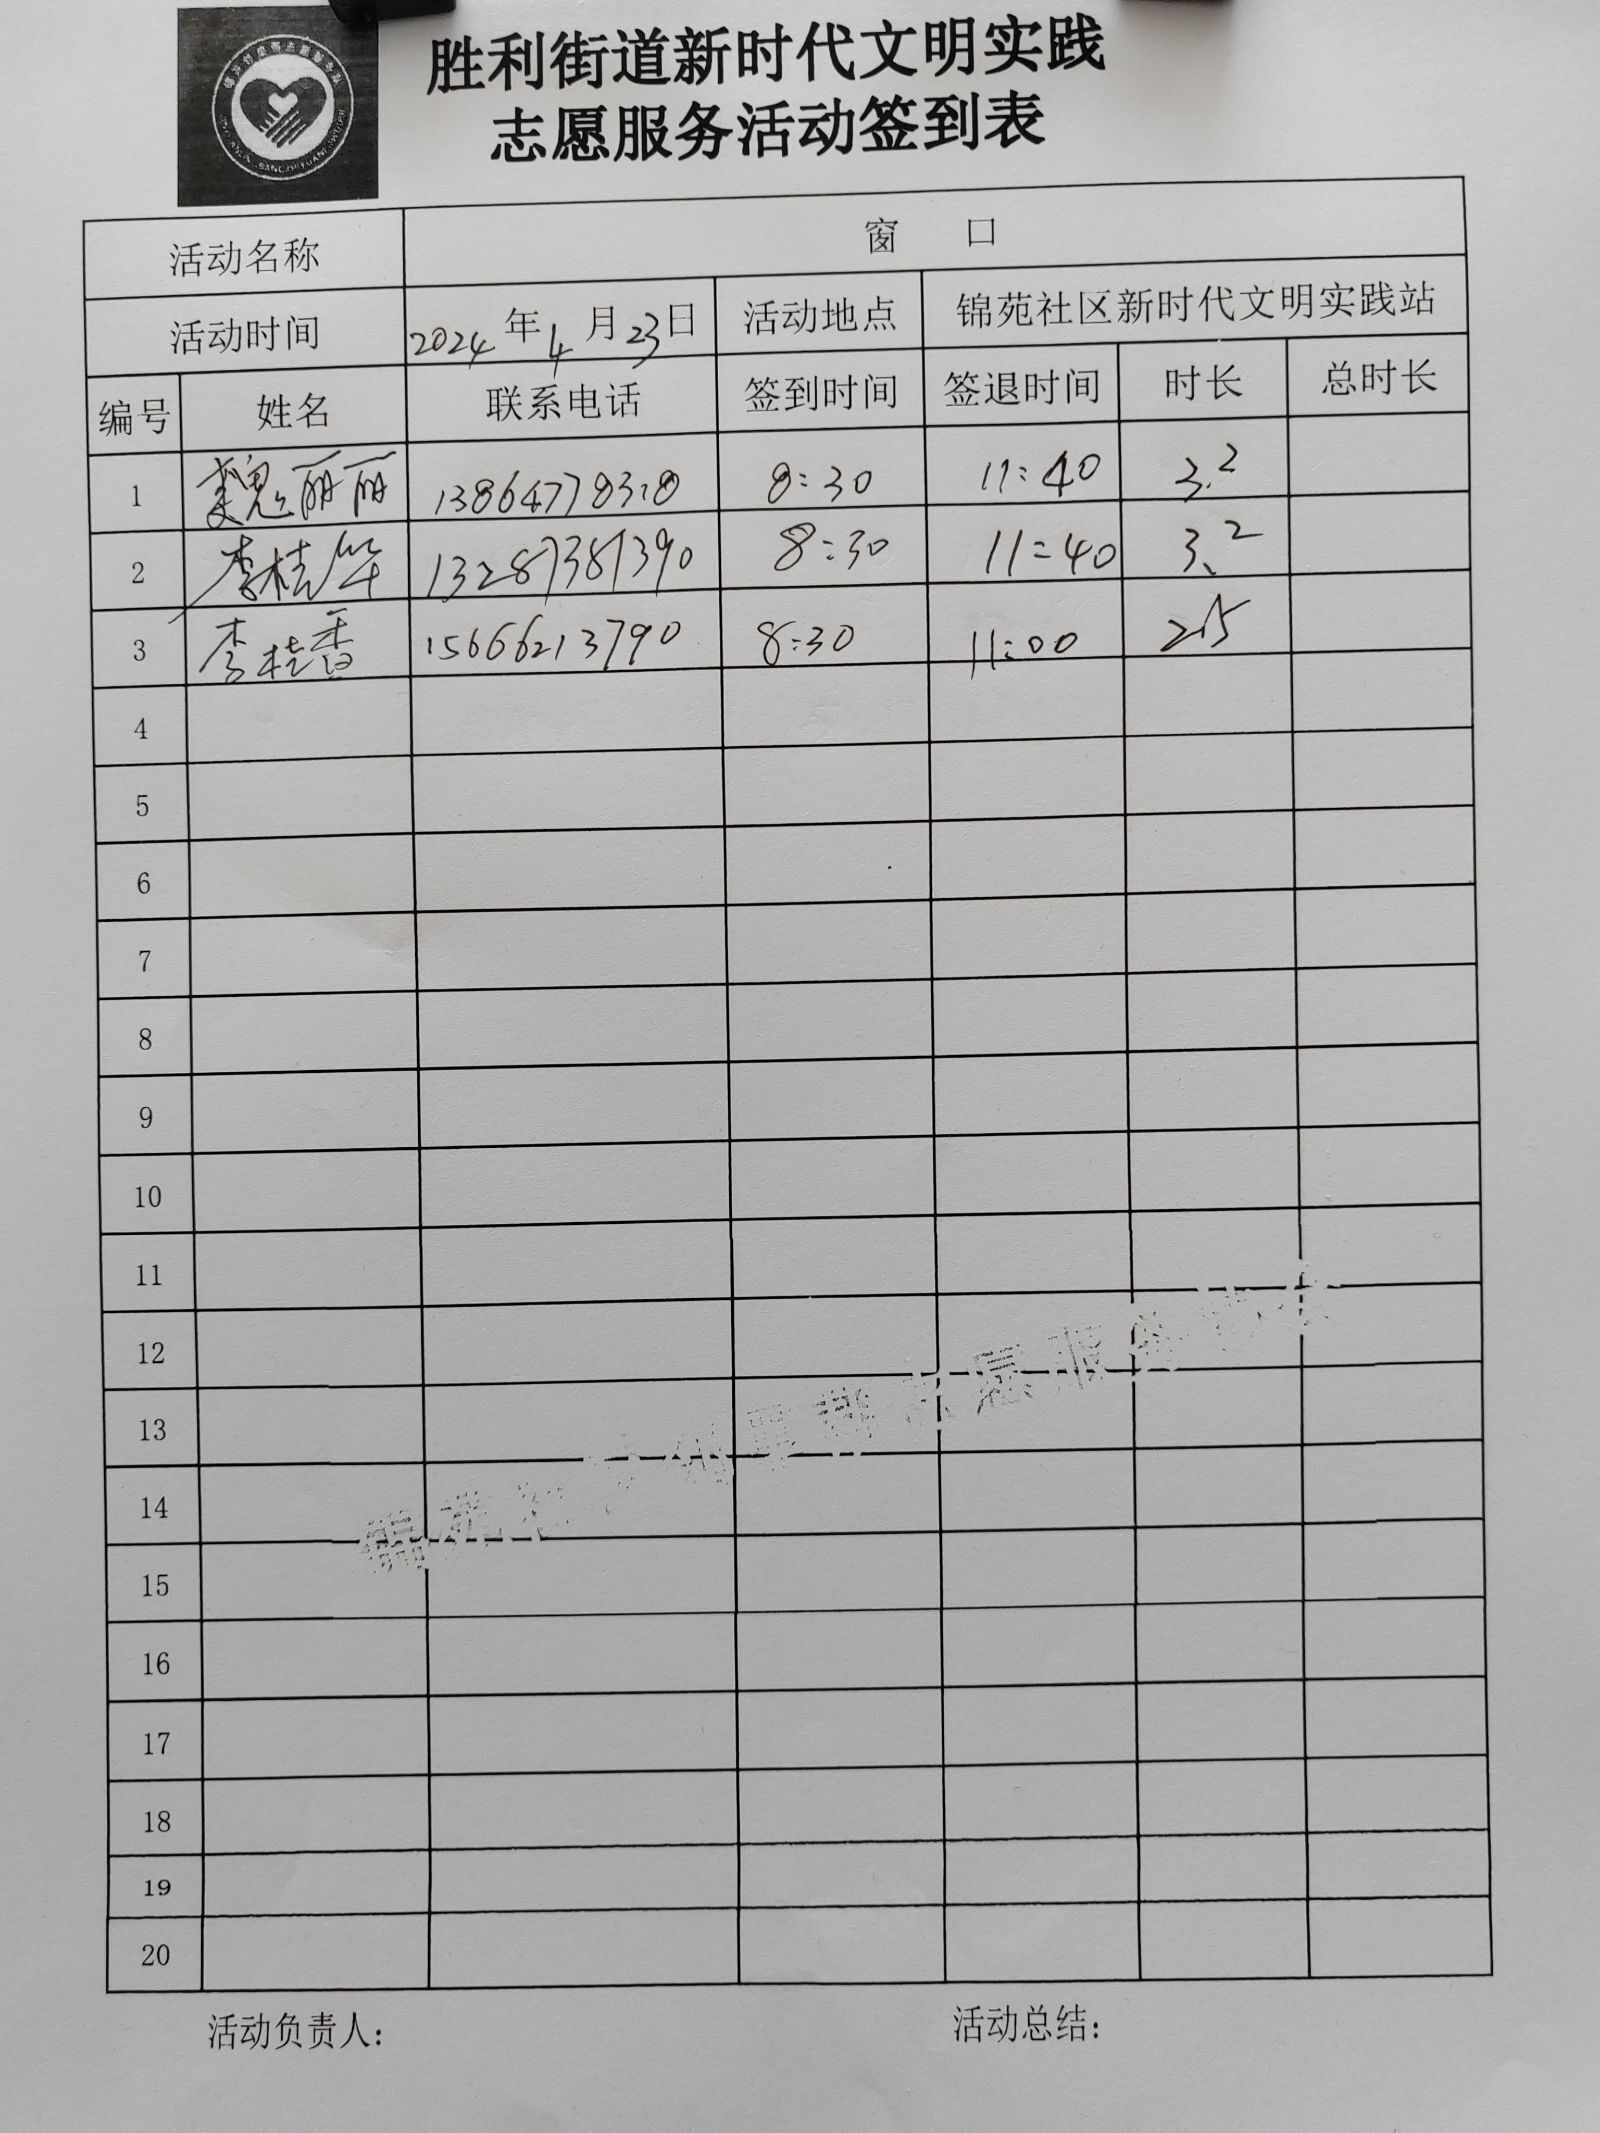 胜利街道新时代文明实践
志愿服务活动签到表
活动名称 窗 口
活动时间 2024年4月23日 活动地点 锦苑社区新时代文明实践站
编号 姓名 联系电话 签到时间 签退时间 时长 总时长
1 魏丽丽 8:30 11:40 3.2
2 李桂华 13287381390 8:30 11:40 3.2
3 李桂香 15666213790 8:30 11:00 2.5
4
5
6
7
8
9
10
11
12
13
14
15
16
17
18
19
20
活动负责人: 活动总结: